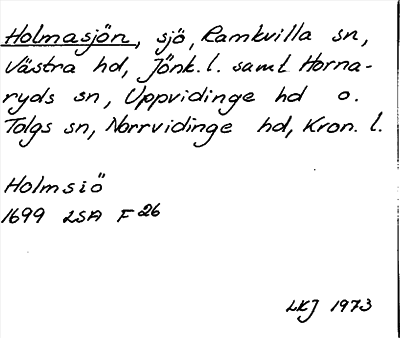 Holmasjön, sjö, Ramkvilla sn,
Västra hd, Jönk. l. samt Horna-
ryds sn, Uppvidinge hd o.
Tolgs sn, Norrvidinge hd, Kron. l.
Holmsiö
1699 LSA F 26
LKJ 1973